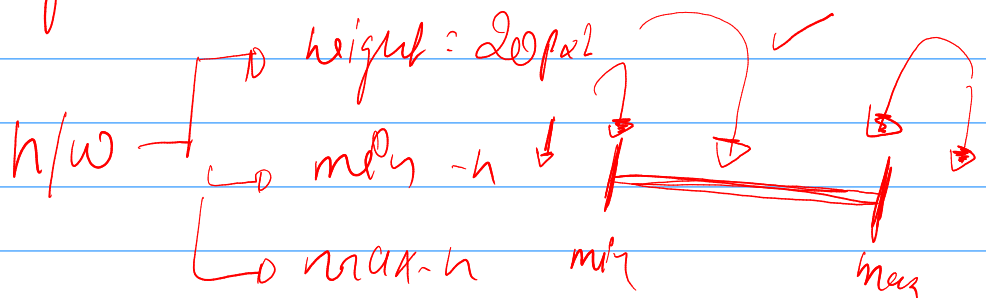 height = 200px
h/w
min-h
max-h
min
max